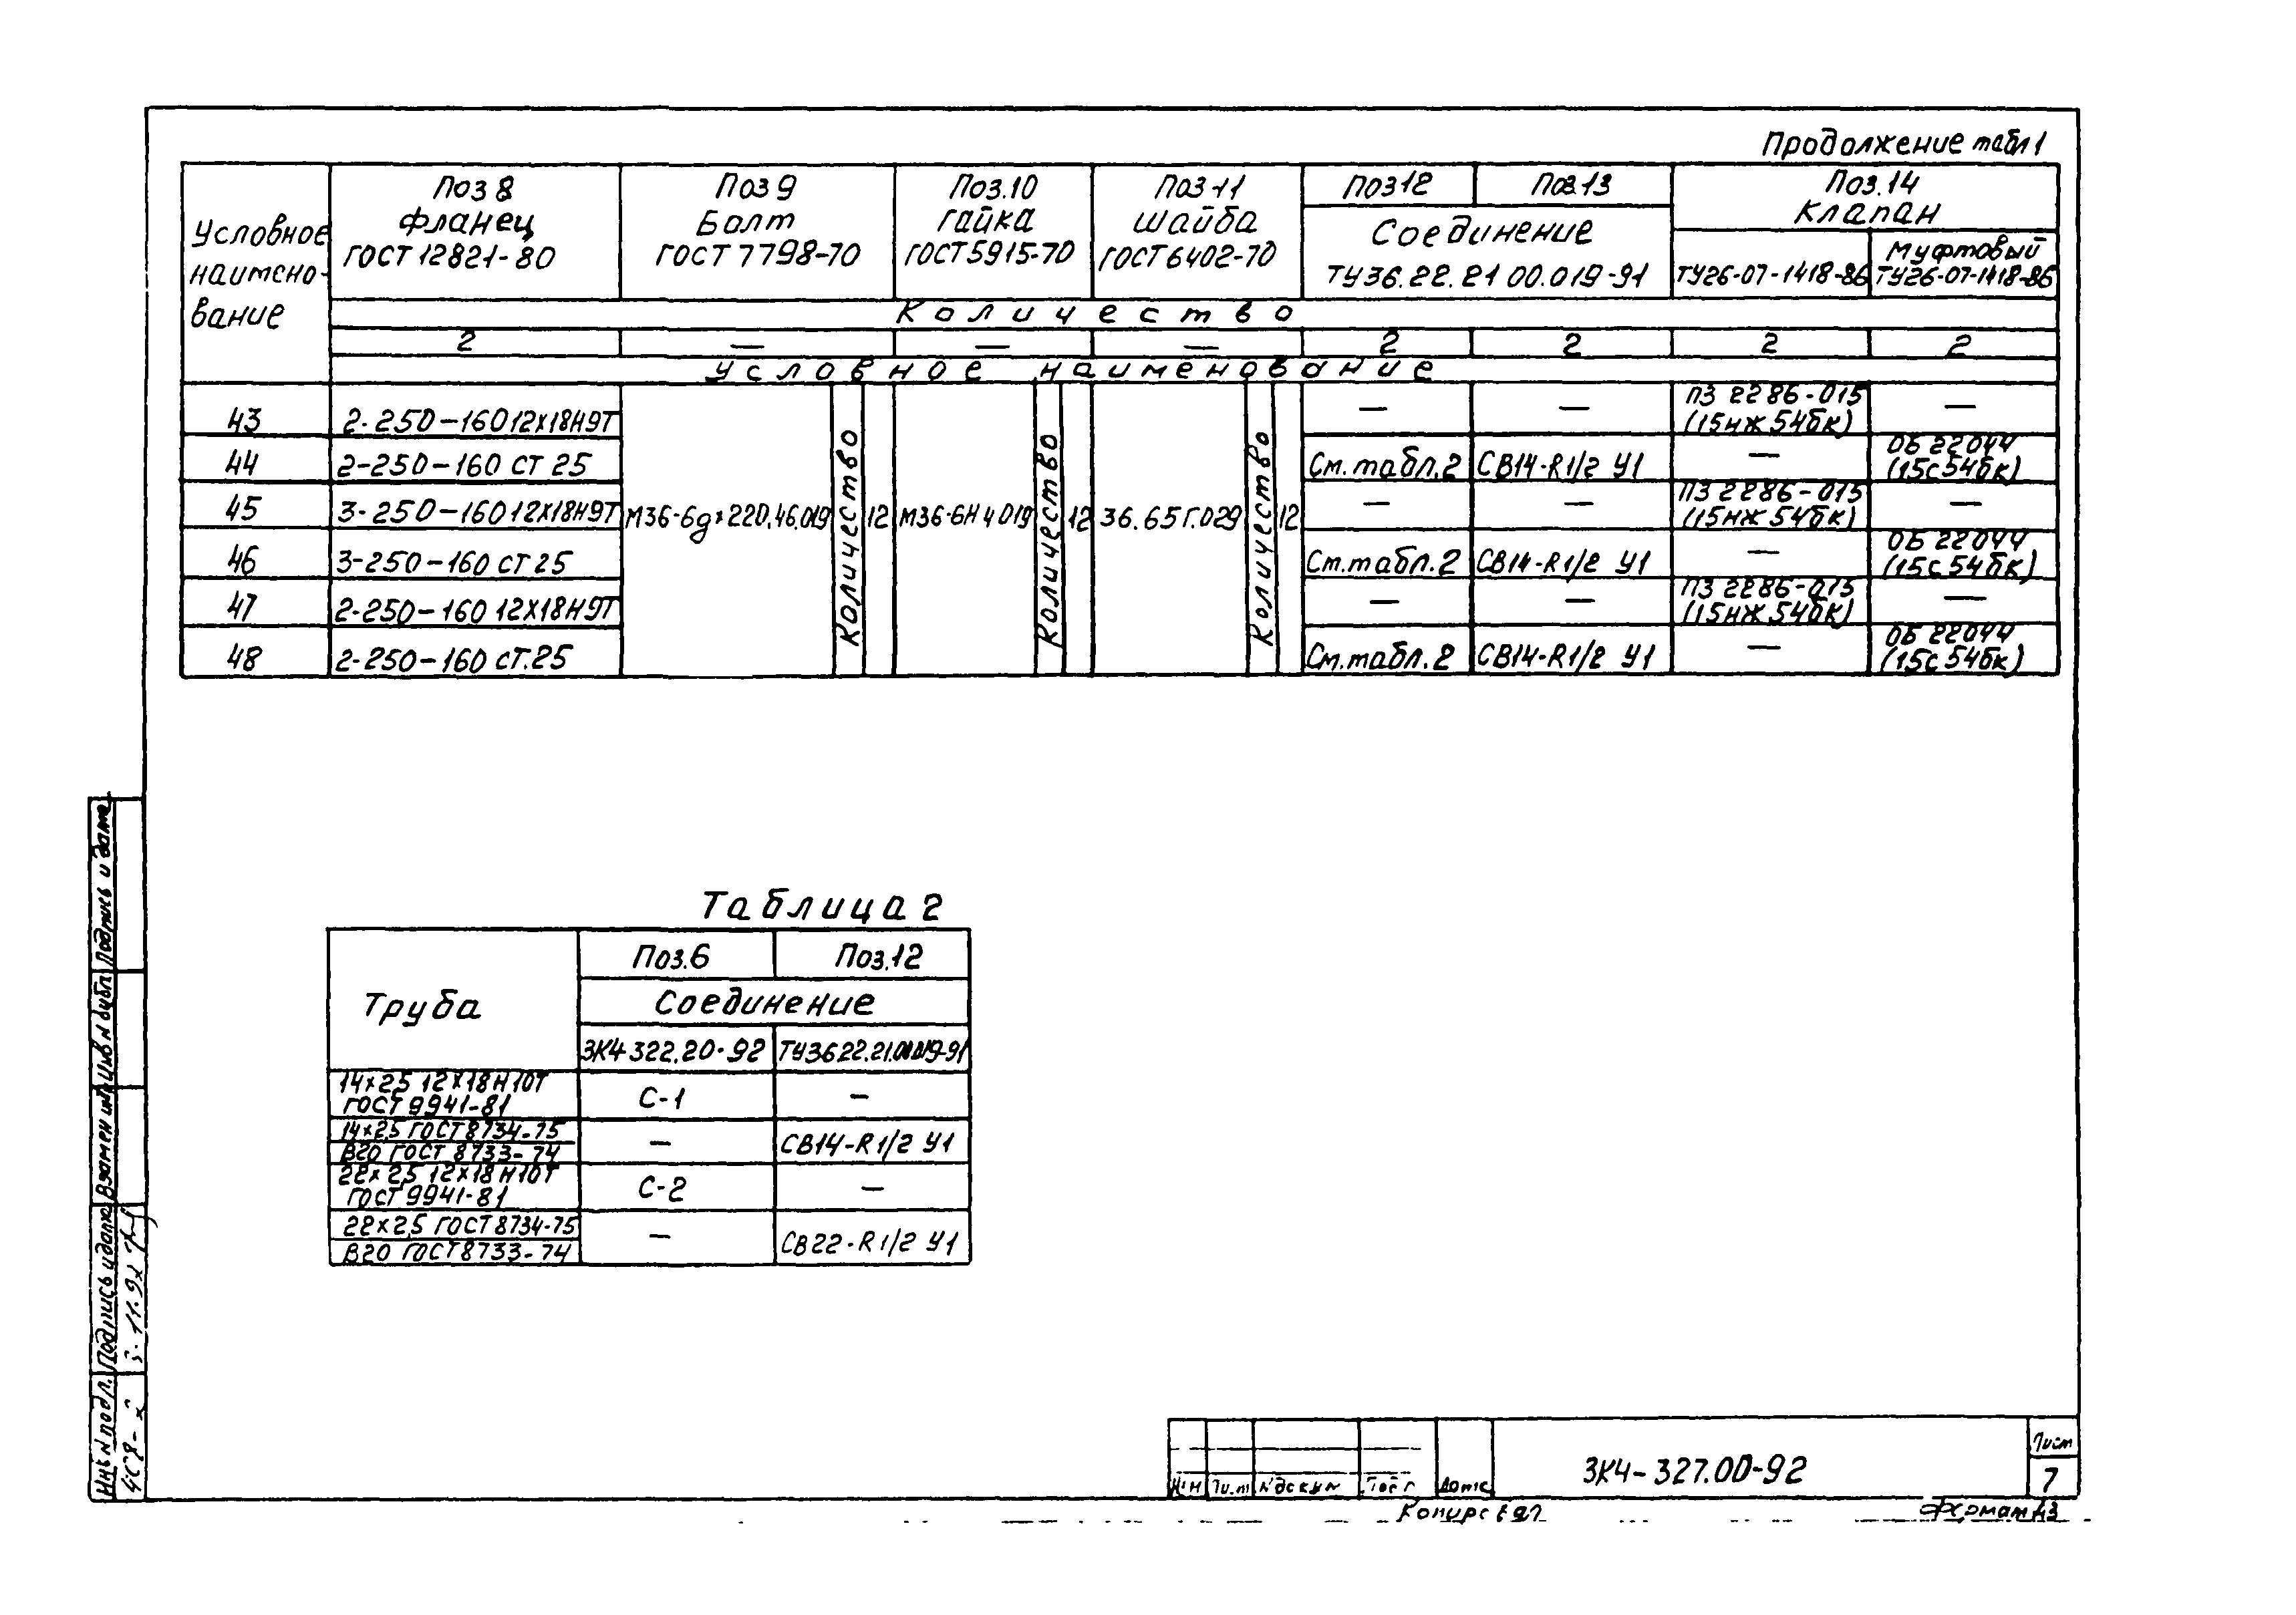 Продолжение табл 1
Условное наимено-вание
Поз 8 Фланец ГОСТ 12821-80
Поз 9 Болт ГОСТ 7798-70
Поз.10 Гайка ГОСТ 5915-70
Поз 11 Шайба ГОСТ 6402-70
Поз 12 Поз.13
Соединение
ТУ36.22.21 00.019-91
Поз.14 Клапан
ТУ26-07-1418-86
Муфтовый ТУ26-07-1418-86
Количество
2 — — — 2 2 2 2
Условное наименование
43 2-250-160 12х18Н9Т — — ПЗ 2286-015 (15нж54бк) —
44 2-250-160 СТ 25 См.табл.2 СВ14-R1/2 У1 — ОБ 22044 (15с54бк)
45 3-250-160 12х18Н9Т М36-6g×220.46.019 Количество 12 М36-6Н 4 019 Количество 12 36.65Г.029 Количество 12 — — ПЗ 2286-015 (15нж54бк) —
46 3-250-160 СТ 25 См.табл.2 СВ14-R1/2 У1 — ОБ 22044 (15с54бк)
47 2-250-160 12Х18Н9Т — — ПЗ 2286-015 (15нж54бк) —
48 2-250-160 СТ.25 См.табл.2 СВ14-R1/2 У1 — ОБ 22044 (15с54бк)
Таблица 2
Труба
Поз.6 Поз.12
Соединение
ЗК4-322.20-92 ТУ3622.21.00.019-91
14×2,5 12×18Н10Т
ГОСТ 9941-81 С-1 —
14×2,5 ГОСТ 8734-75
В20 ГОСТ 8733-74 — СВ14-R1/2 У1
22×2,5 12×18Н10Т
ГОСТ 9941-81 С-2 —
22×2,5 ГОСТ 8734-75
В20 ГОСТ 8733-74 — СВ22-R1/2 У1
Подпись и дата
Инв N дубл.
Взамен инв
Подпись и дата
Инв N подл.
Дата
ЗК4-327.00-92
Лист
7
Копировал
Формат А3